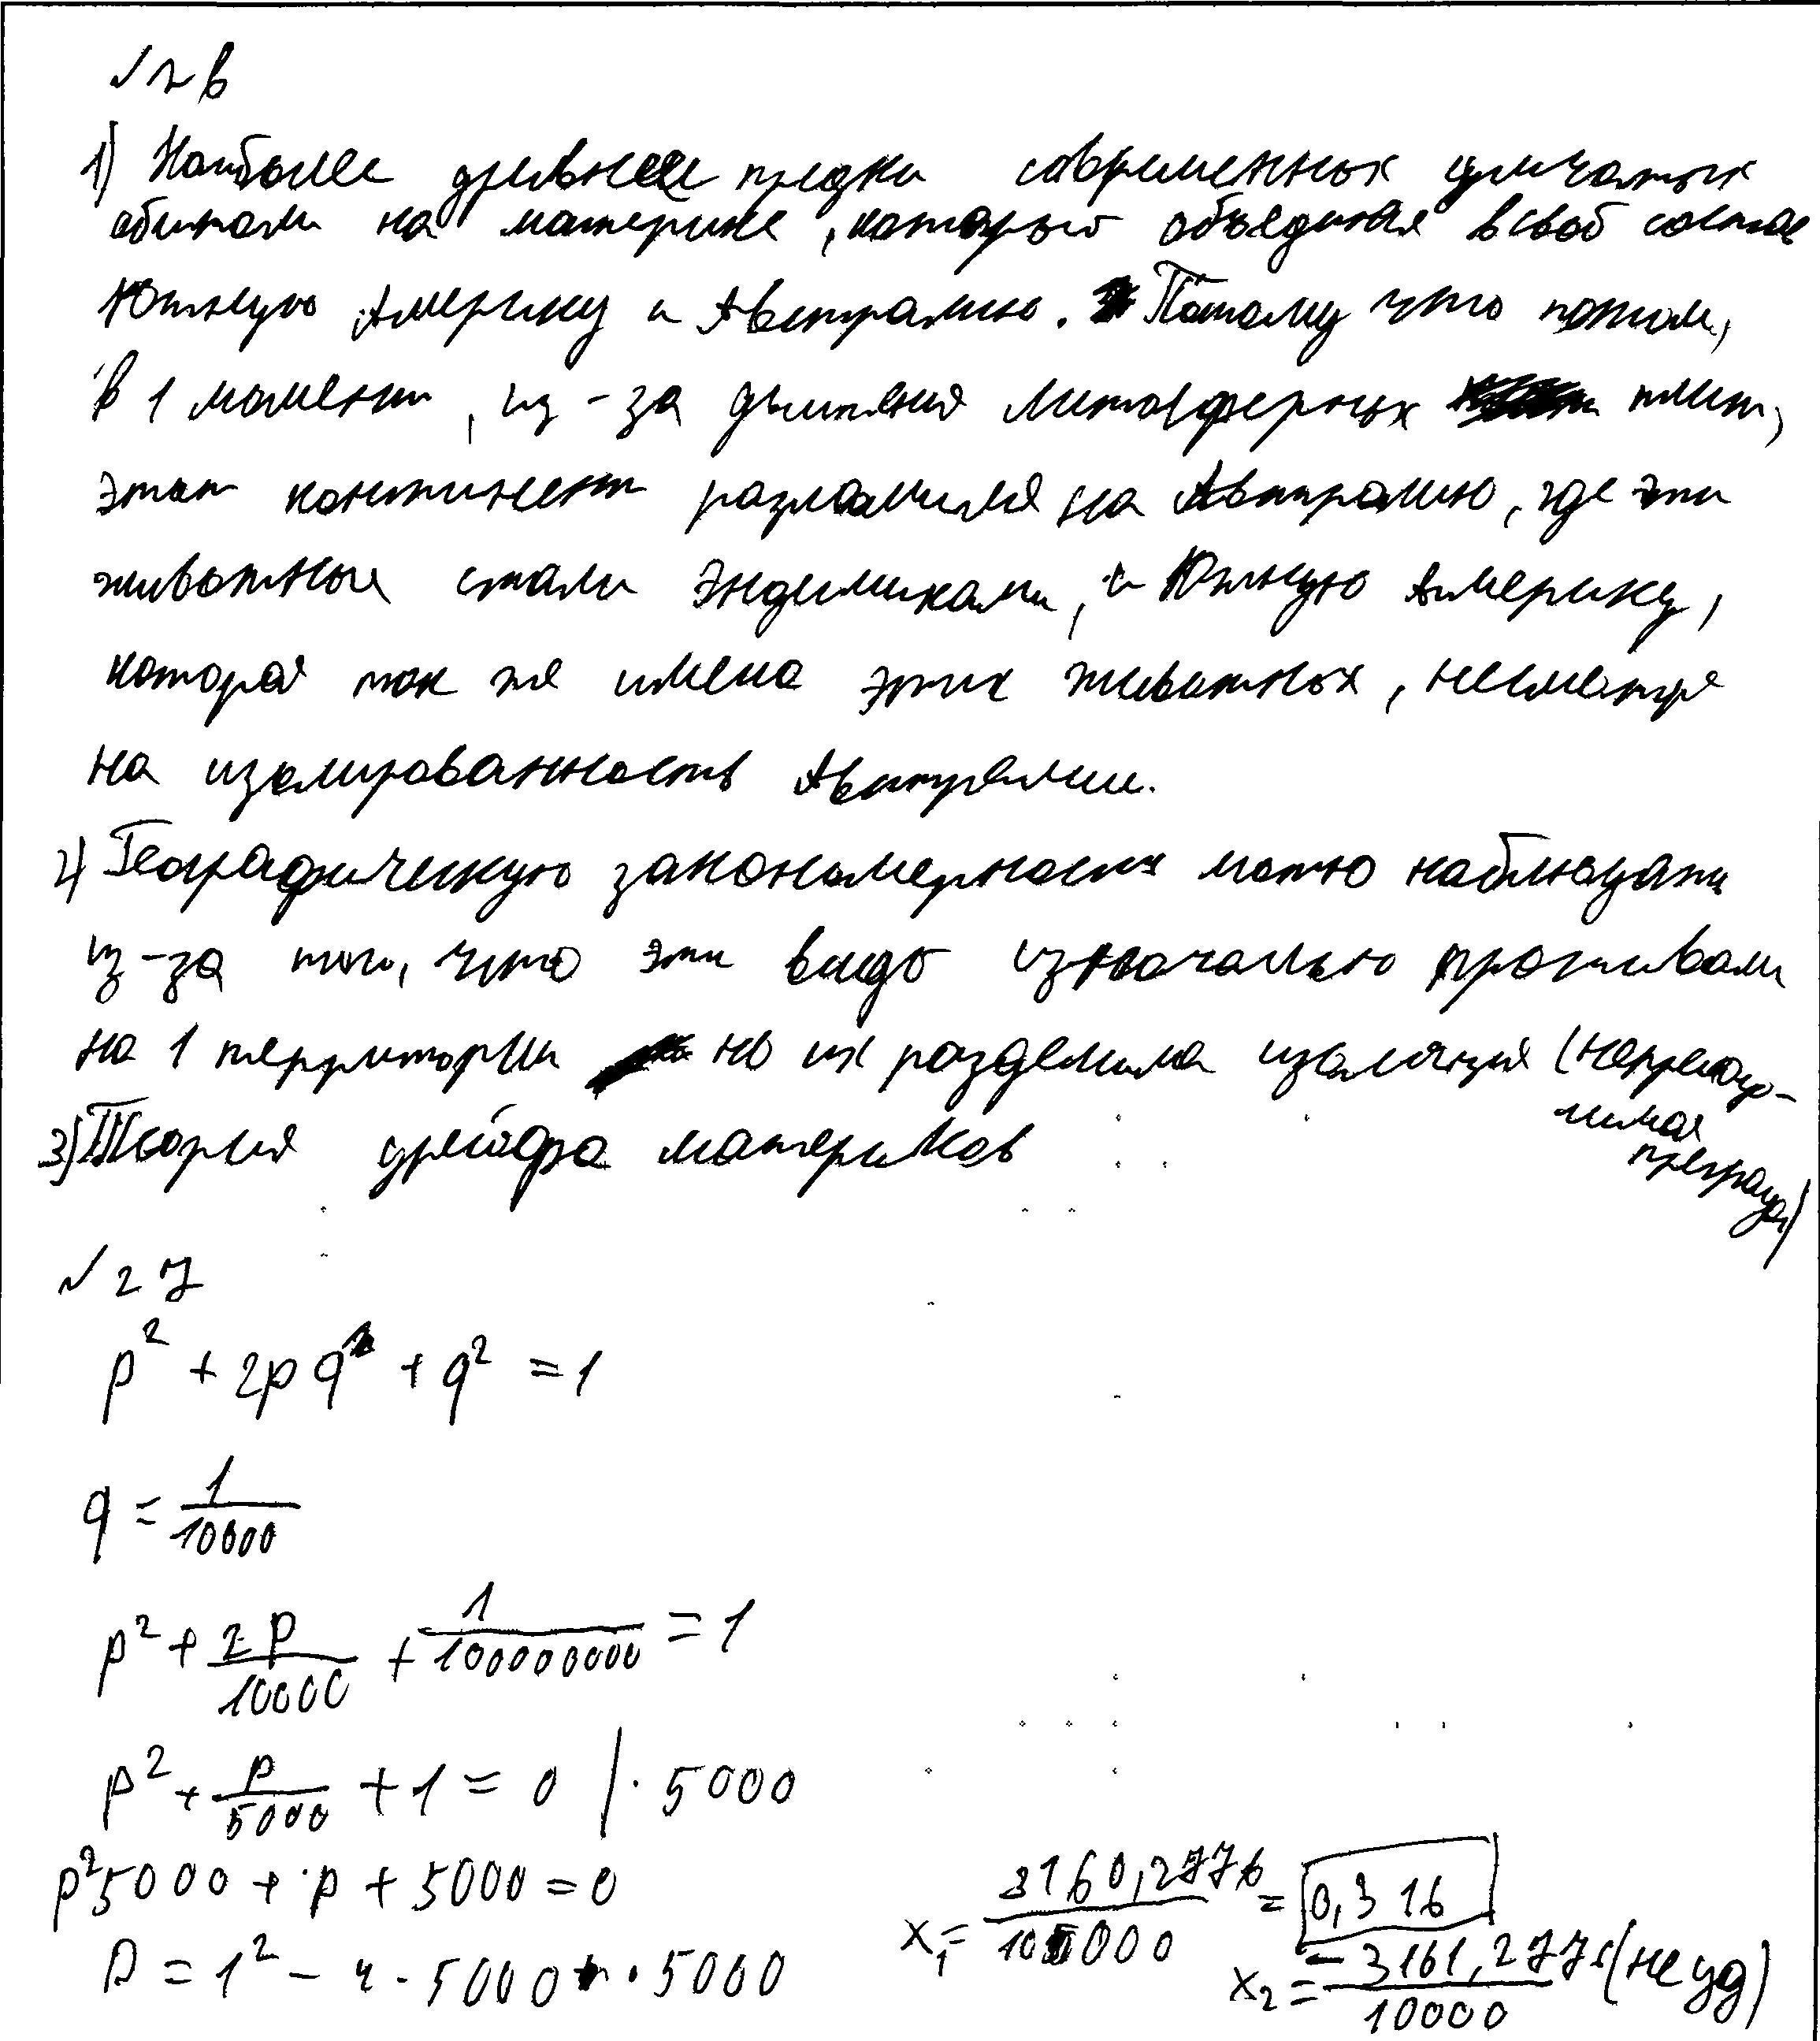 √ 2 6
1) Наиболее древнее предки современных сумчатых
обитали на материке, который объединял в свой состав
Южную Америку и Австралию. Потому что потом,
В 1 момент, из-за движения литосферных плит,
этот континент разломился на Австралию, где эти
животные стали эндемиками, и Южную Америку,
которая так же имела этих животных, несмотря
на изолированность Австралии.
2) Географическую закономерность можно наблюдать
из-за того, что эти виды изначально проживали
на 1 территории но их разделила изоляция (непреодо-
лимая
преграда)
3) Теория дрейфа материков
√ 2 7
p² + 2pq + q² = 1
q = 1/10000
p² + 2p/10000 + 1/100000000 = 1
p² + p/5000 + 1 = 0 | · 5000
p²5000 + p + 5000 = 0
D = 1² - 4 · 5000 · 5000
x₁ = 3160,2776/10000 = 0,316
x₂ = -3161,277/10000 (не уд)